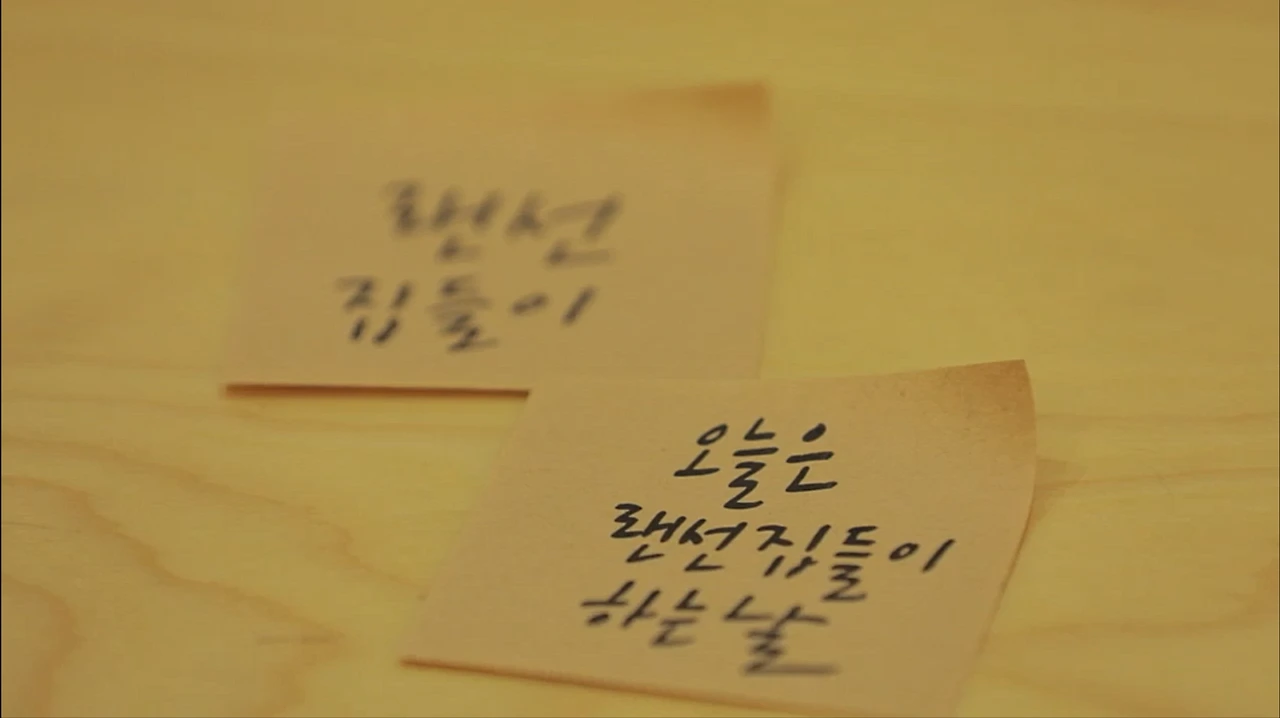 랜선
집들이
오늘은
랜선집들이
하는 날